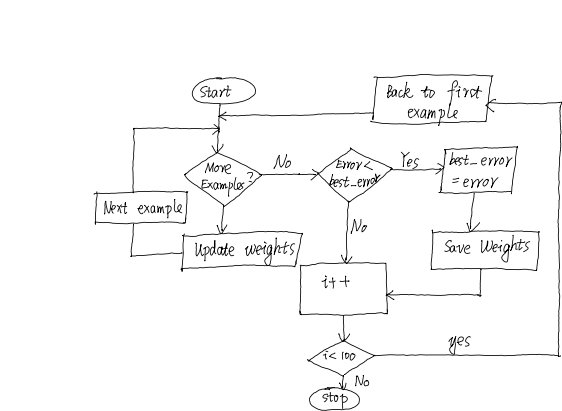 Start
Back to first
example
More
Examples?
No
Error<
best_error
Yes
best_error
= error
Next example
Update weights
No
Save Weights
i++
i<100
yes
No
stop